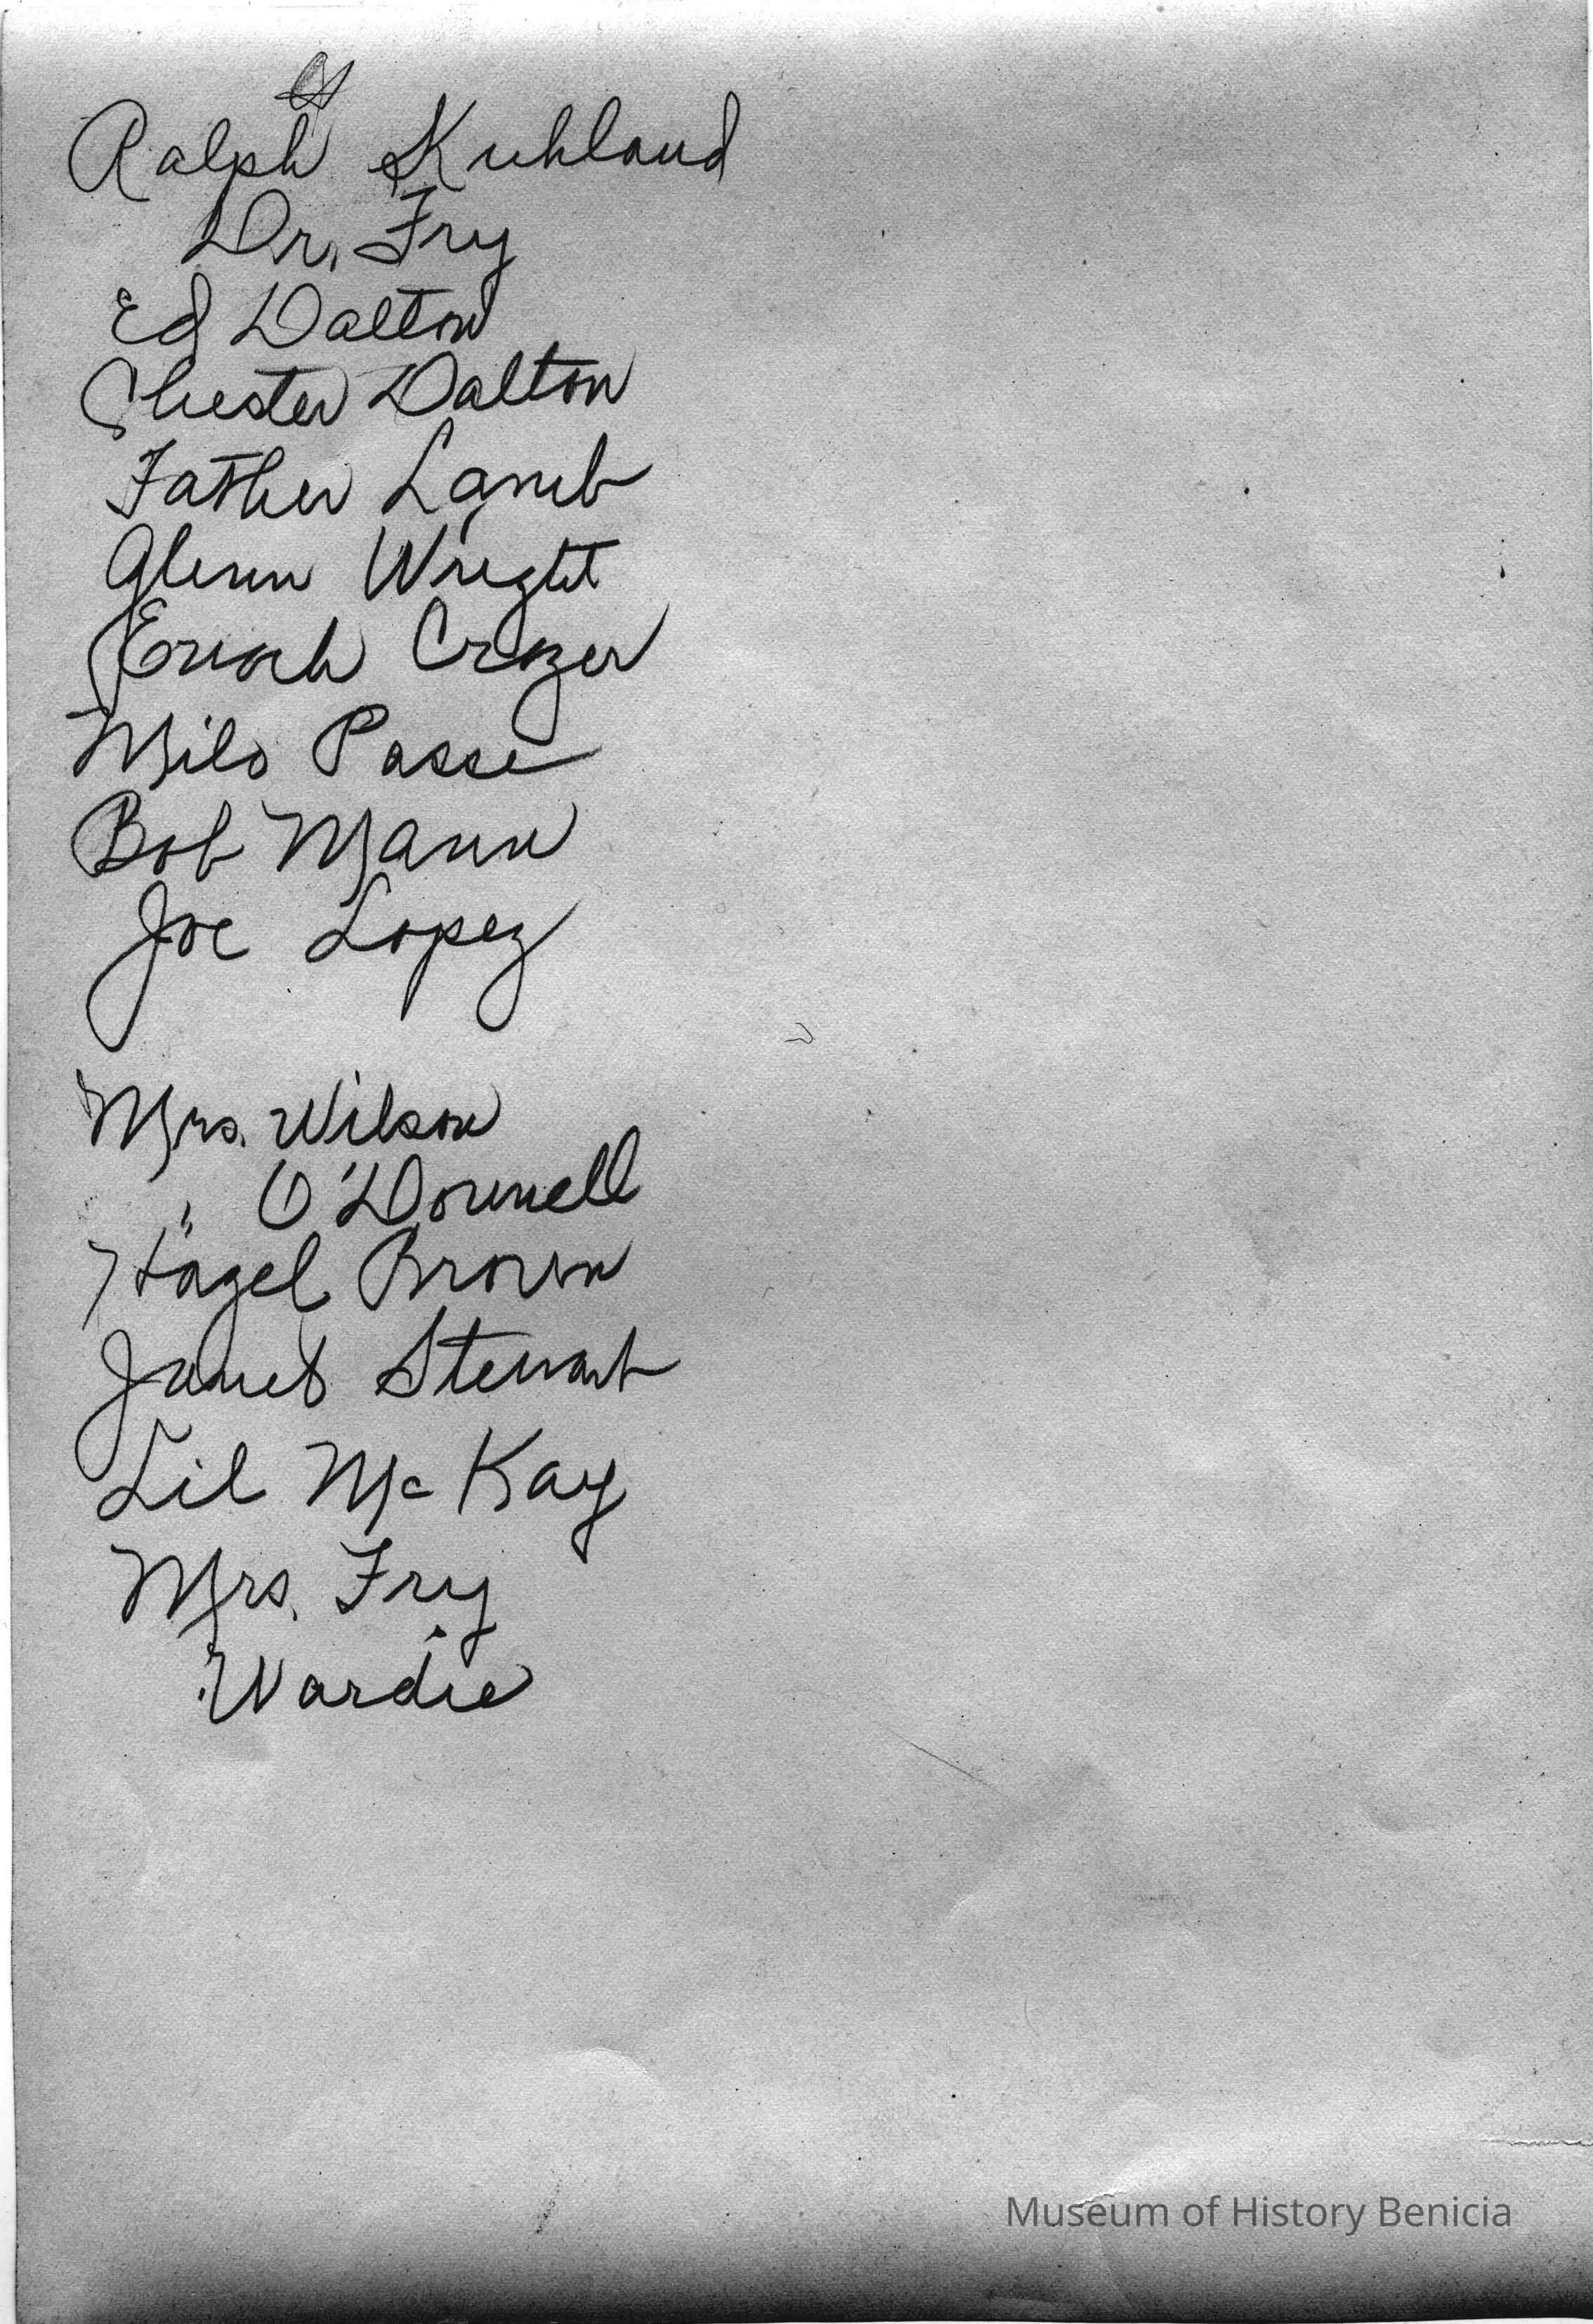 Ralph Kuhland
Dr. Fry
Ed Dalton
Chester Dalton
Father Lamb
Glenn Wright
Enoch Crozer
Milo Passe
Bob Mann
Joe Lopez
Mrs. Wilson
" O'Donnell
Hazel Brown
Janet Stewart
Lil McKay
Mrs. Fry
Wardie
Museum of History Benicia